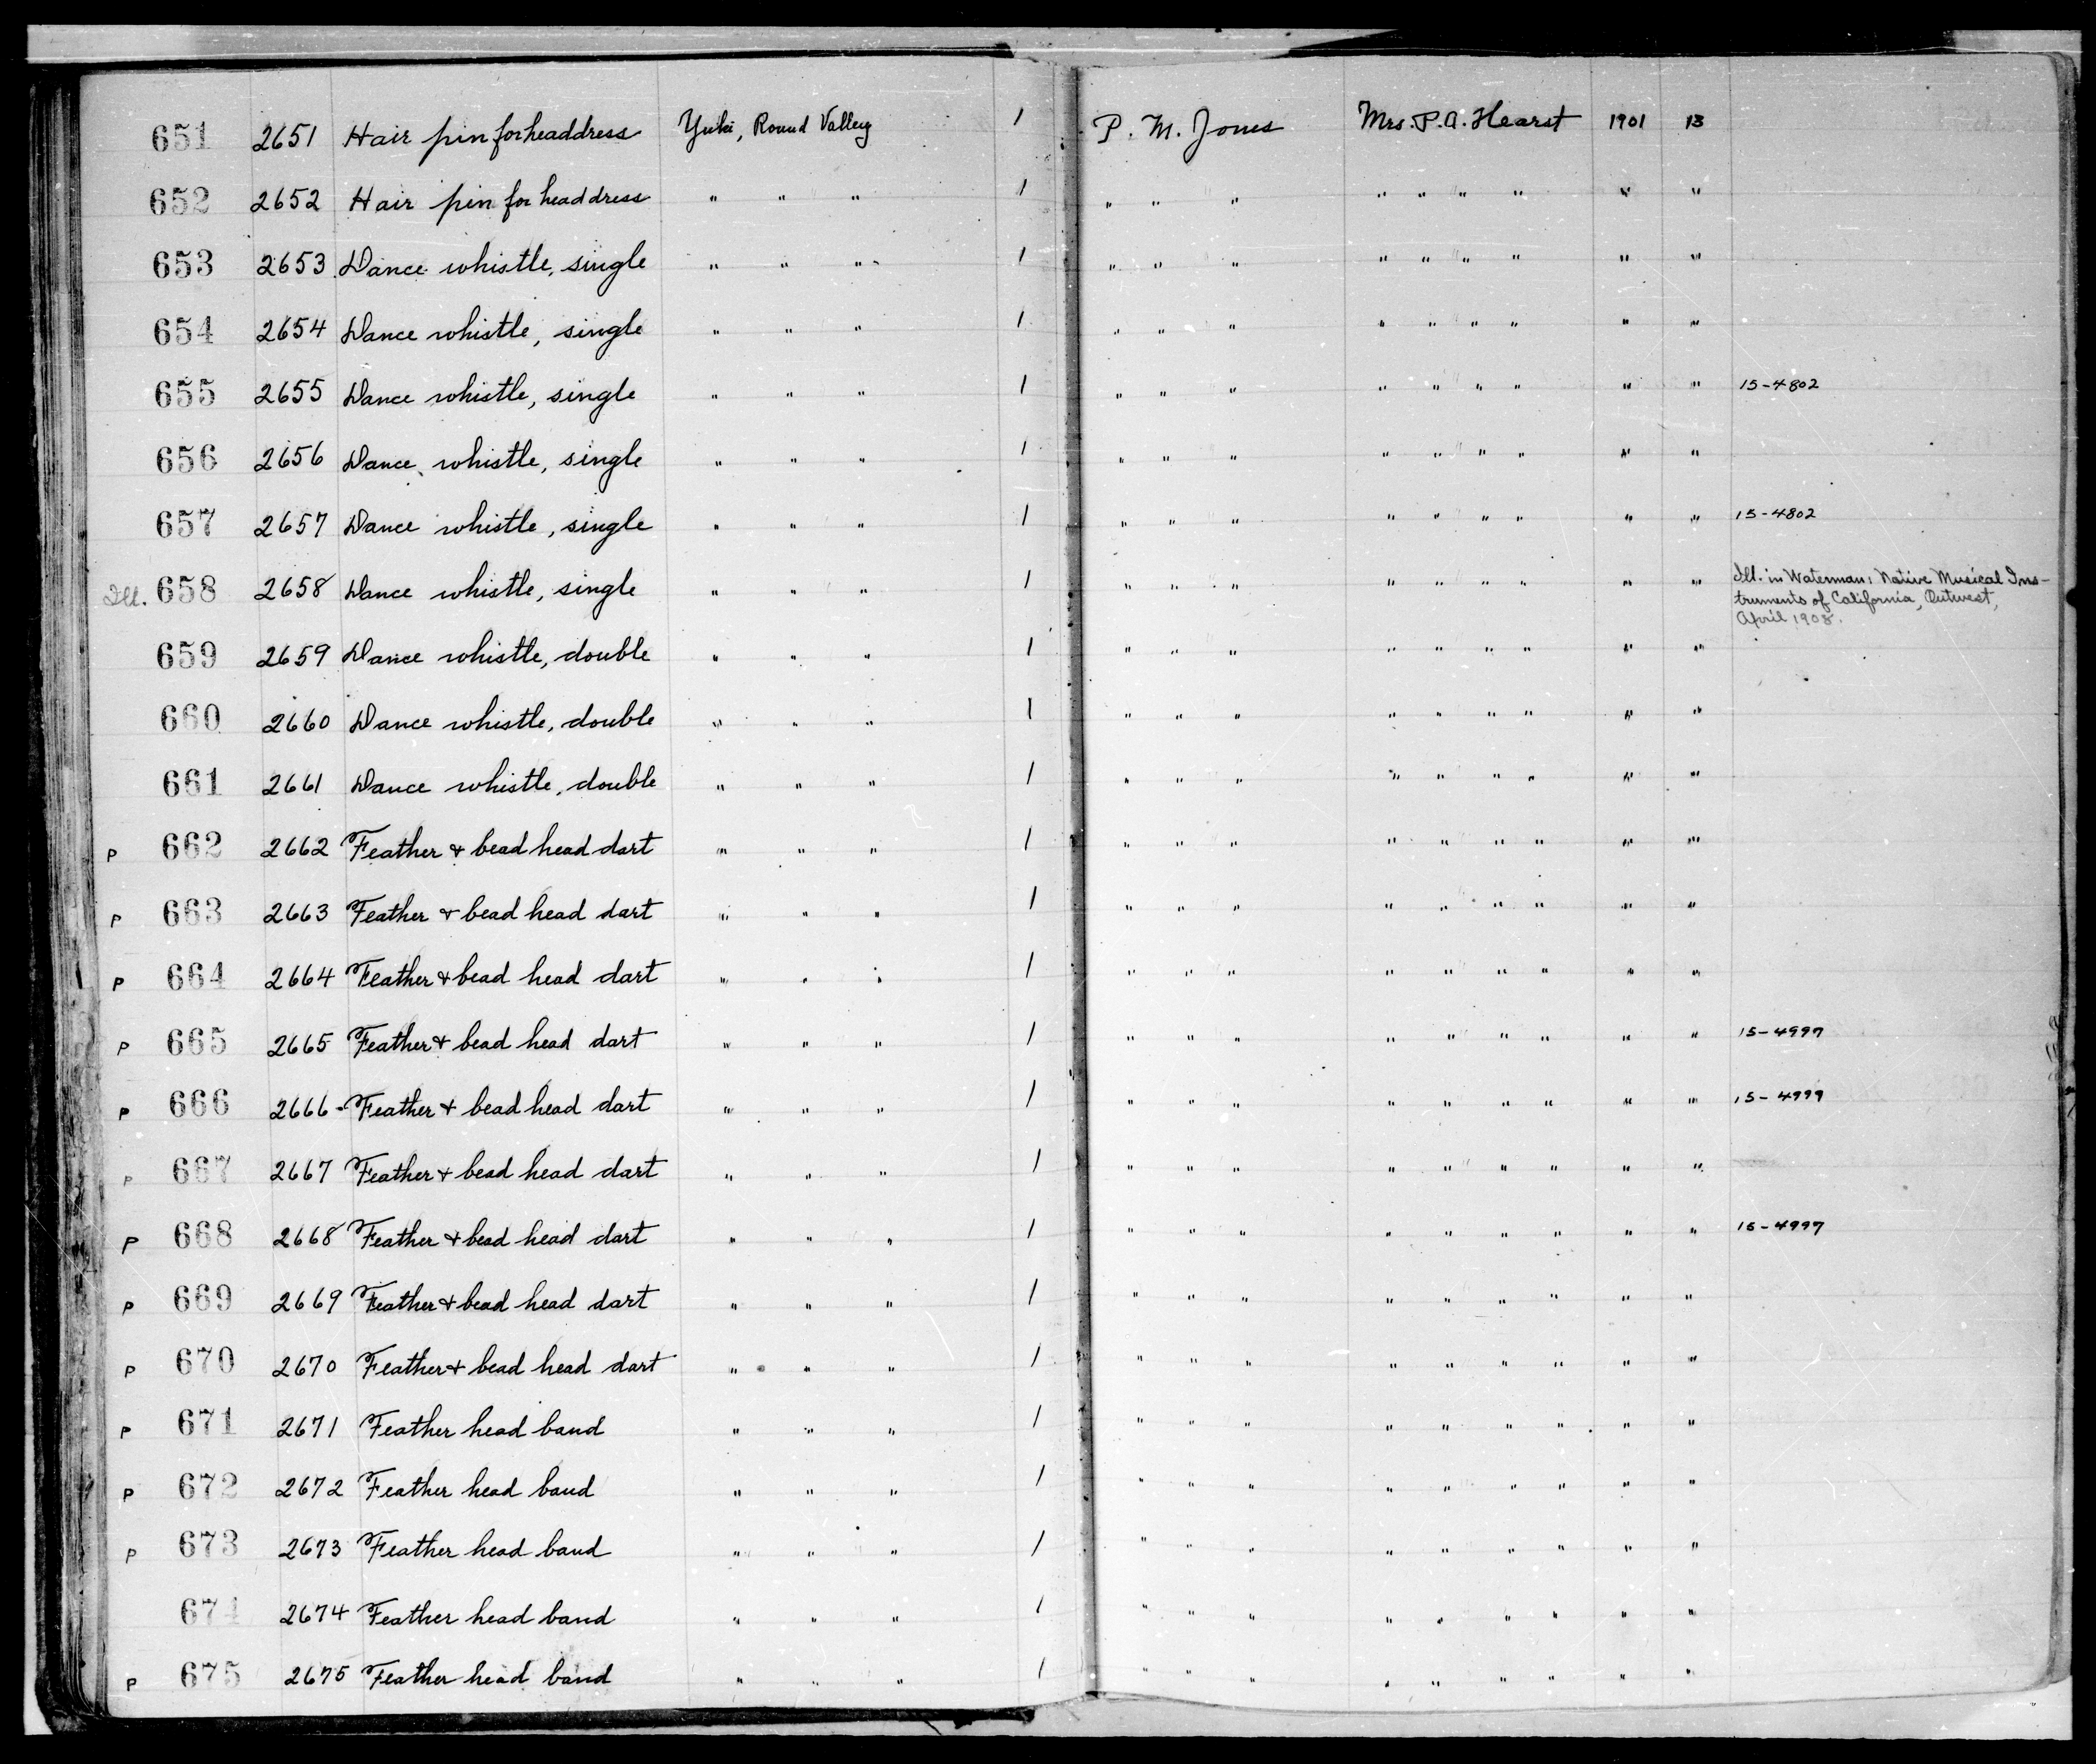 651 2651 Hair pin for headdress Yuki, Round Valley 1 P. M. Jones Mrs. P. A. Hearst 1901 13
652 2652 Hair pin for headdress " " " 1 " " " " " " " " "
653 2653 Dance whistle, single " " " 1 " " " " " " " " "
654 2654 Dance whistle, single " " " 1 " " " " " " " " "
655 2655 Dance whistle, single " " " 1 " " " " " " " " " 15-4802
656 2656 Dance whistle, single " " " 1 " " " " " " " " "
657 2657 Dance whistle, single " " " 1 " " " " " " " " " 15-4802
Ill. 658 2658 Dance whistle, single " " " 1 " " " " " " " " " Ill. in Waterman: Native Musical Ins-
truments of California, Outwest,
April 1908.
659 2659 Dance whistle, double " " " 1 " " " " " " " " "
660 2660 Dance whistle, double " " " 1 " " " " " " " " "
661 2661 Dance whistle, double " " " 1 " " " " " " " " "
P 662 2662 Feather & bead head dart " " " 1 " " " " " " " " "
P 663 2663 Feather & bead head dart " " " 1 " " " " " " " " "
P 664 2664 Feather & bead head dart " " " 1 " " " " " " " " "
P 665 2665 Feather & bead head dart " " " 1 " " " " " " " " " 15-4997
P 666 2666- Feather & bead head dart " " " 1 " " " " " " " " " 15-4999
P 667 2667 Feather & bead head dart " " " 1 " " " " " " " " "
P 668 2668 Feather & bead head dart " " " 1 " " " " " " " " " 15-4997
P 669 2669 Feather & bead head dart " " " 1 " " " " " " " " "
P 670 2670 Feather & bead head dart " " " 1 " " " " " " " " "
P 671 2671 Feather head band " " " 1 " " " " " " " " "
P 672 2672 Feather head band " " " 1 " " " " " " " " "
P 673 2673 Feather head band " " " 1 " " " " " " " " "
674 2674 Feather head band " " " 1 " " " " " " " " "
P 675 2675 Feather head band " " " 1 " " " " " " " " "